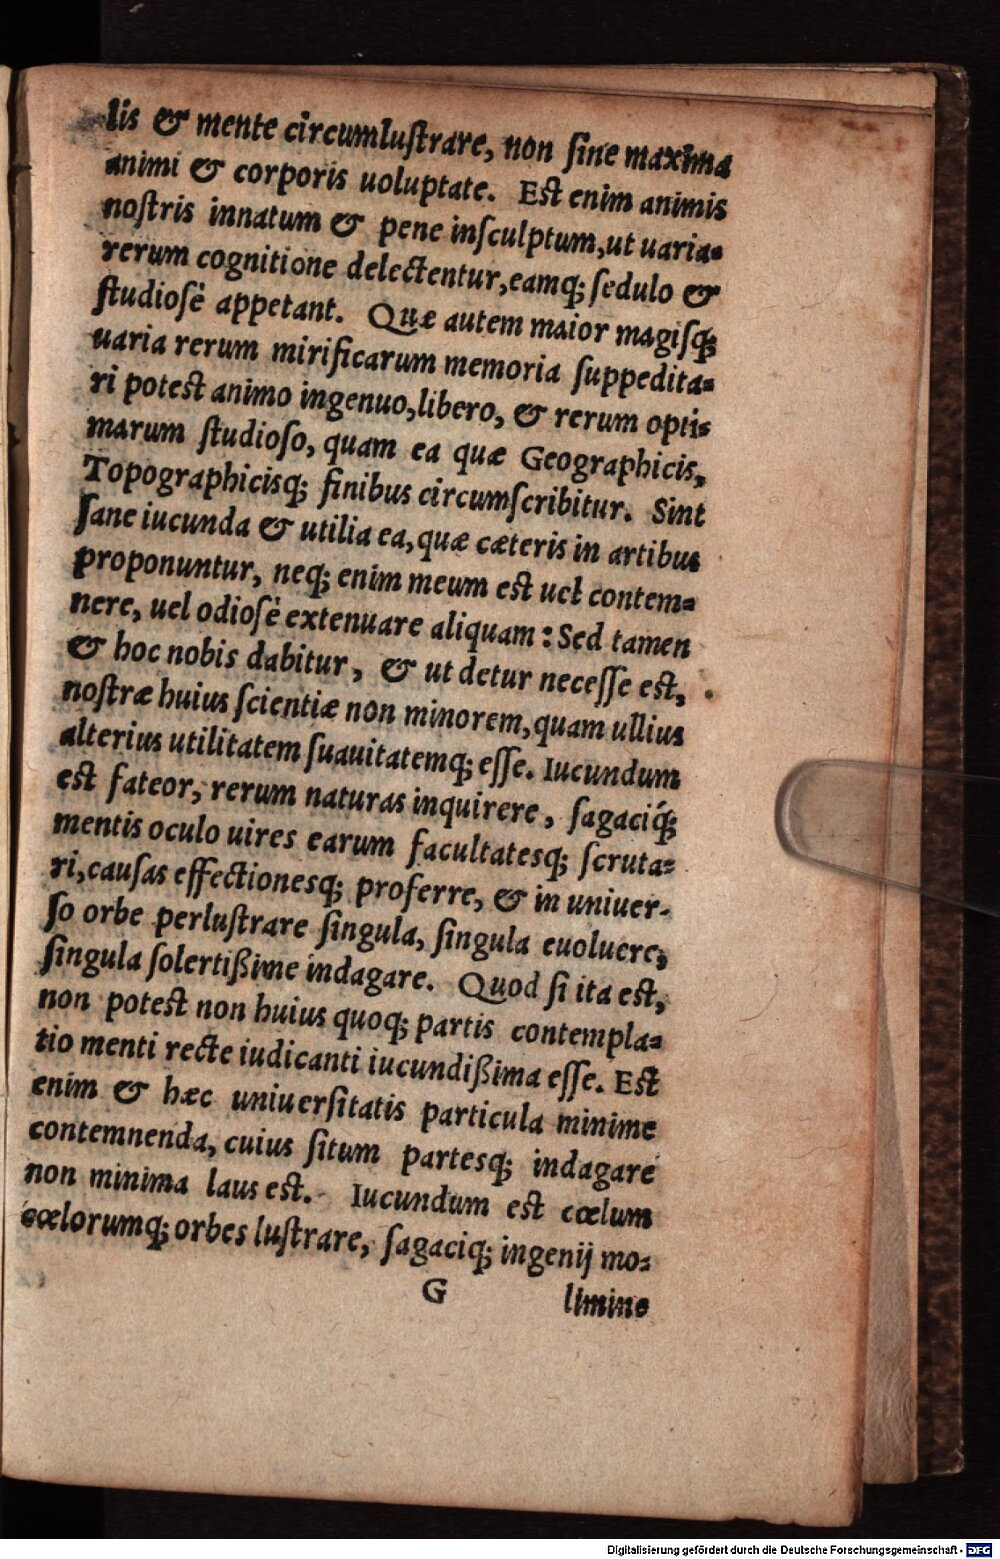 lis & mente circumluſtrare, non ſine maxima
animi & corporis uoluptate. Eſt enim animis
noſtris innatum & pene inſculptum, ut uaria-
rerum cognitione delectentur, eamq; ſedulo &
ſtudioſè appetant. Quæ autem maior magiſq;
uaria rerum mirificarum memoria ſuppedita-
ri poteſt animo ingenuo, libero, & rerum opti-
marum ſtudioſo, quam ea quæ Geographicis,
Topographicisq; finibus circumſcribitur. Sint
ſane iucunda & utilia ea, quæ cæteris in artibus
proponuntur, neq; enim meum eſt uel contem-
nere, uel odioſè extenuare aliquam: Sed tamen
& hoc nobis dabitur, & ut detur neceſſe eſt,
noſtræ huius ſcientiæ non minorem, quam ullius
alterius utilitatem ſuauitatemq; eſſe. Iucundum
eſt fateor, rerum naturas inquirere, ſagaciq́;
mentis oculo uires earum facultatesq; ſcruta-
ri, cauſas effectionesq; proferre, & in uniuer-
ſo orbe perluſtrare ſingula, ſingula euoluere,
ſingula ſolertißime indagare. Quod ſi ita eſt,
non poteſt non huius quoq; partis contempla-
tio menti recte iudicanti iucundißima eſſe. Eſt
enim & hæc uniuerſitatis particula minime
contemnenda, cuius ſitum partesq; indagare
non minima laus eſt. Iucundum eſt cœlum
cœlorumq; orbes luſtrare, ſagaciq; ingenij mo-
G limine
Digitalisierung gefördert durch die Deutsche Forschungsgemeinschaft - DFG